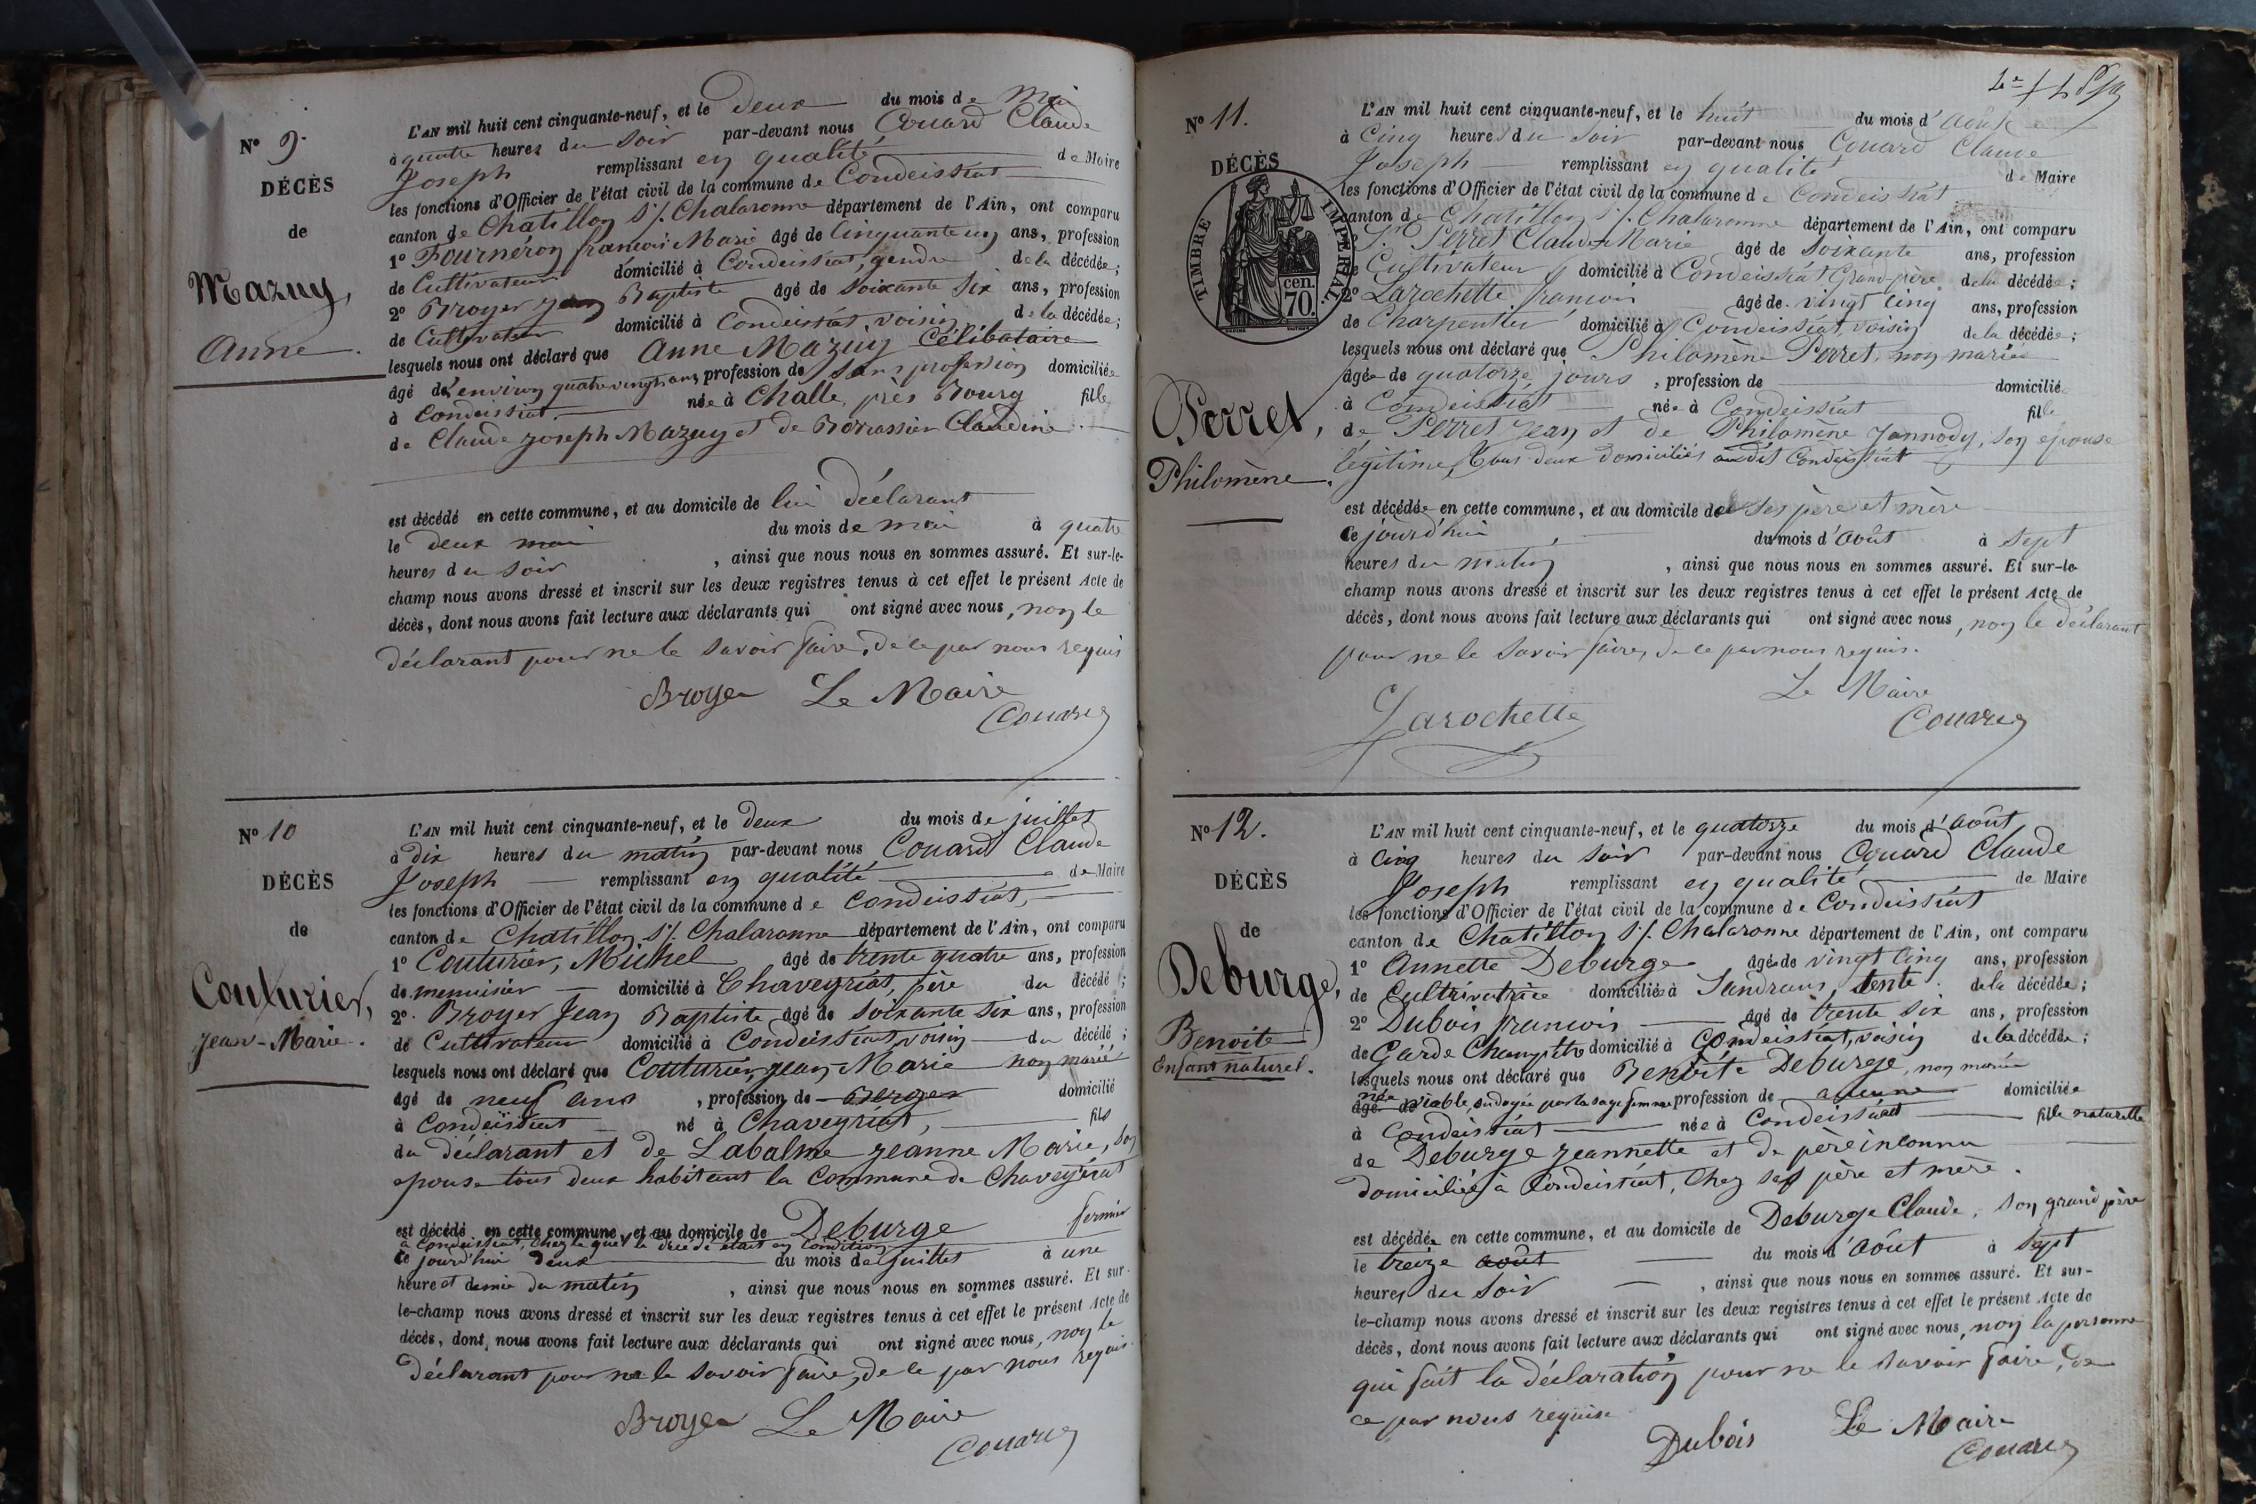 N° 9.
DÉCÈS
de
Mazuy,
Anne.
L'AN mil huit cent cinquante-neuf, et le deux du mois de Mai
à quatre heures du soir par-devant nous Couard Claude
Joseph remplissant en qualité de Maire
les fonctions d'Officier de l'état civil de la commune de Condeissiat
canton de Chatillon s/. Chalaronne département de l'Ain, ont comparu
1° Fournéron françois Marie âgé de Cinquante un ans, profession
de Cultivateur domicilié à Condeissiat, gendre de la décédée;
2° Broyer Jean Baptiste âgé de soixante six ans, profession
de Cultivateur domicilié à Condeissiat, voisin de la décédée;
lesquels nous ont déclaré que Anne Mazuy Célibataire
âgé d'environ quatre vingts ans profession de sans profession domiciliée
à Condeissiat née à Challe, près Bourg fille
de Claude Joseph Mazuy et de Claudine
est décédé en cette commune, et au domicile de lui déclarant
le deux mai du mois de mai à quatre
heures du soir, ainsi que nous nous en sommes assuré. Et sur-le-
champ nous avons dressé et inscrit sur les deux registres tenus à cet effet le présent Acte de
décès, dont nous avons fait lecture aux déclarants qui ont signé avec nous, non le
déclarant pour ne le savoir faire, de ce par nous requis
Broyer Le Maire
Couard
N° 10
DÉCÈS
de
Couturier,
Jean-Marie.
L'AN mil huit cent cinquante-neuf, et le deux du mois de juillet
à dix heures du matin par-devant nous Couard Claude
Joseph remplissant en qualité de Maire
les fonctions d'Officier de l'état civil de la commune de Condeissiat,
canton de Chatillon s/. Chalaronne département de l'Ain, ont comparu
1° Couturier, Michel âgé de trente quatre ans, profession
de menuisier domicilié à Chaveyriat, père du décédé;
2° Broyer Jean Baptiste âgé de soixante six ans, profession
de Cultivateur domicilié à Condeissiat, voisin du décédé;
lesquels nous ont déclaré que Couturier, Jean Marie non marié
âgé de neuf ans, profession de Berger domicilié
à Condeissiat né à Chaveyriat, fils
du déclarant et de Labalme Jeanne Marie, son
épouse tous deux habitant la Commune de Chaveyriat
est décédé en cette commune, et au domicile de Deburge fermier
à Condeissiat, chez le quel le décédé était en Condition
ce jourd'hui deux du mois de juillet à une
heure et demie du matin, ainsi que nous nous en sommes assuré. Et sur-
le-champ nous avons dressé et inscrit sur les deux registres tenus à cet effet le présent Acte de
décès, dont nous avons fait lecture aux déclarants qui ont signé avec nous, non le
déclarant pour ne le savoir faire, de ce par nous requis.
Broyer Le Maire
Couard
N° 11.
DÉCÈS
TIMBRE IMPÉRIAL
70. cen.
Perret,
Philomène.
L'AN mil huit cent cinquante-neuf, et le huit du mois d'Août
à Cinq heures du soir par-devant nous Couard Claude
Joseph remplissant en qualité de Maire
les fonctions d'Officier de l'état civil de la commune de Condeissiat
canton de Chatillon s/. Chalaronne département de l'Ain, ont comparu
1° Perret Claude Marie âgé de soixante ans, profession
de Cultivateur domicilié à Condeissiat Grand-père de la décédée;
2° Larochette françois âgé de vingt Cinq ans, profession
de Charpentier domicilié à Condeissiat, voisin de la décédée;
lesquels nous ont déclaré que Philomène Perret, non mariée
âgée de quatorze jours, profession de domicilié
à Condeissiat née à Condeissiat fille
de Perret Jean et de Philomène son épouse
légitime, tous deux domiciliés audit Condeissiat
est décédée en cette commune, et au domicile de ses père et mère
ce jourd'hui du mois d'Août à sept
heures du matin, ainsi que nous nous en sommes assuré. Et sur-le-
champ nous avons dressé et inscrit sur les deux registres tenus à cet effet le présent Acte de
décès, dont nous avons fait lecture aux déclarants qui ont signé avec nous, non le déclarant
pour ne le savoir faire, de ce par nous requis.
Le Maire
Larochette Couard
N° 12.
DÉCÈS
de
Deburge,
Benoite
Enfant naturel.
L'AN mil huit cent cinquante-neuf, et le quatorze du mois d'Août
à Cinq heures du soir par-devant nous Couard Claude
Joseph remplissant en qualité de Maire
les fonctions d'Officier de l'état civil de la commune de Condeissiat
canton de Chatillon s/. Chalaronne département de l'Ain, ont comparu
1° Annette Deburge âgée de vingt Cinq ans, profession
de Cultivatrice domiciliée à Sandrans, tente de la décédée;
2° Dubois françois âgé de trente six ans, profession
de Garde Champêtre domicilié à Condeissiat, voisin de la décédée;
lesquels nous ont déclaré que Benoite Deburge, non mariée
née viable, ondoyée par la sage femme profession de aucune domiciliée
à Condeissiat née à Condeissiat fille naturelle
de Deburge Jeannette et de père inconnu
domiciliée à Condeissiat, Chez ses père et mère.
est décédée en cette commune, et au domicile de Deburge Claude, son grand père
le treize août du mois d'Août à sept
heures du soir, ainsi que nous nous en sommes assuré. Et sur-
le-champ nous avons dressé et inscrit sur les deux registres tenus à cet effet le présent Acte de
décès, dont nous avons fait lecture aux déclarants qui ont signé avec nous, non la personne
qui fait la déclaration pour ne le savoir faire, de
ce par nous requise
Dubois Le Maire
Couard